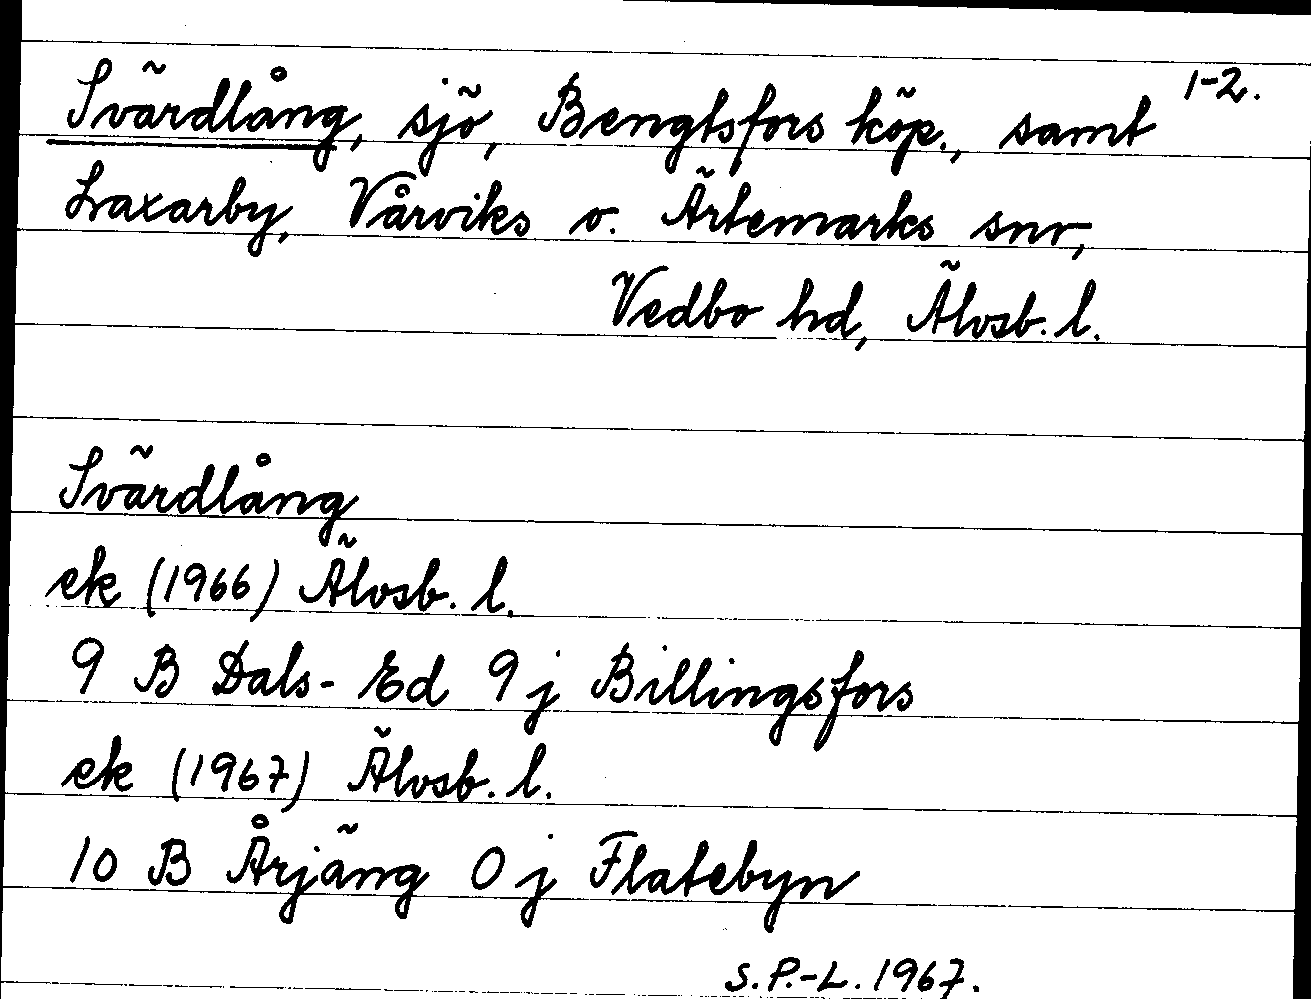 1-2.
Svärdlång, sjö, Bengtsfors köp., samt
Laxarby, Vårviks o. Ärtemarks snr,
Vedbo hd, Älvsb. l.
Svärdlång
ek (1966) Älvsb. l.
9 B Dals-Ed 9 j Billingsfors
ek (1967) Älvsb. l.
10 B Årjäng 0 j Flatebyn
S.P.-L. 1967.